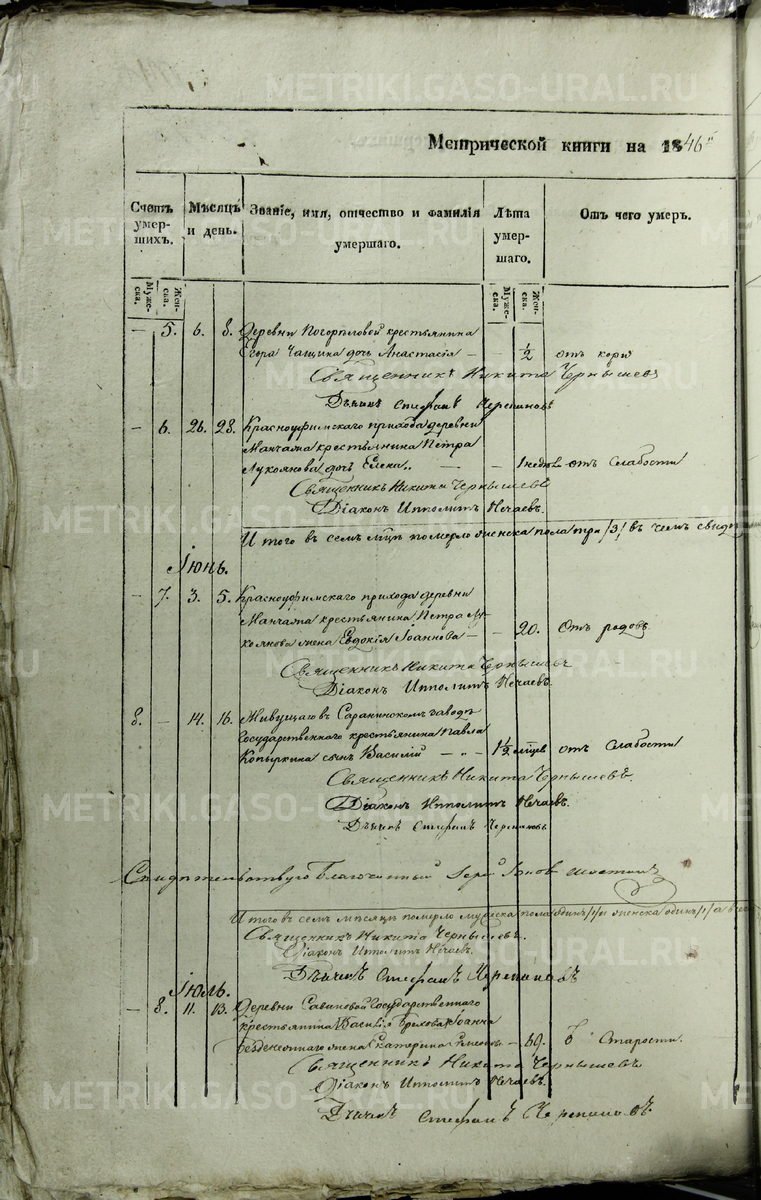 METRIKI.GASO-URAL.RU
Метрической книги на 1846й
Счетъ умер-
шихъ.
Муже-
ска.
Жен-
ска.
Мѣсяцъ
и день.
Званіе, имя, отчество и фамилія
умершаго.
Лѣта
умер-
шаго.
Муже-
ска.
Жен-
ска.
Отъ чего умеръ.
— 5. 6. 8. Деревни Погорѣловой крестьянина
Егора Чащина дочь Анастасія — — ½ отъ кори
Священникъ Никита Чернышевъ
Дьячекъ Стефанъ Черепановъ
— 6. 26. 28. Красноуфимскаго прихода деревни
Манчажа крестьянина Петра
Лукоянова дочь Елена.. — — 1 недѣли отъ слабости
Священникъ Никита Чернышевъ
Діаконъ Ипполитъ Нечаевъ.
Итого въ семъ мѣсяцѣ померло женска пола три /3/ въ чемъ свидѣ
Іюнь.
— 7. 3. 5. Красноуфимскаго прихода деревни
Манчажа крестьянина Петра Лу
коянова жена Евдокія Іоаннова — — 20. Отъ родовъ
Священникъ Никита Чернышевъ
Діаконъ Ипполитъ Нечаевъ.
8. — 14. 16. Живущаго въ Саранинскомъ заводѣ
Государственнаго крестьянина Павла
Копыркина сынъ Василій — „ — 1½ мѣсяцевъ отъ слабости
Священникъ Никита Чернышевъ.
Діаконъ Ипполитъ Нечаевъ.
Дьячекъ Стефанъ Черепановъ
Свидѣтельствую Благочинный
Итого въ семъ мѣсяцѣ померло мужеска пола одинъ /1/ и женска одинъ /1/ а всего
Священникъ Никита Чернышевъ.
Діаконъ Ипполитъ Нечаевъ.
Дьячекъ Стефанъ Черепановъ
Іюль.
— 8. 11. 13. Деревни Савиновой Государственнаго
крестьянина Василія Іоанна
жена Екатерина — 69. Старости.
Священникъ Никита Чернышевъ
Діаконъ Ипполитъ Нечаевъ.
Дьячекъ Стефанъ Черепановъ.